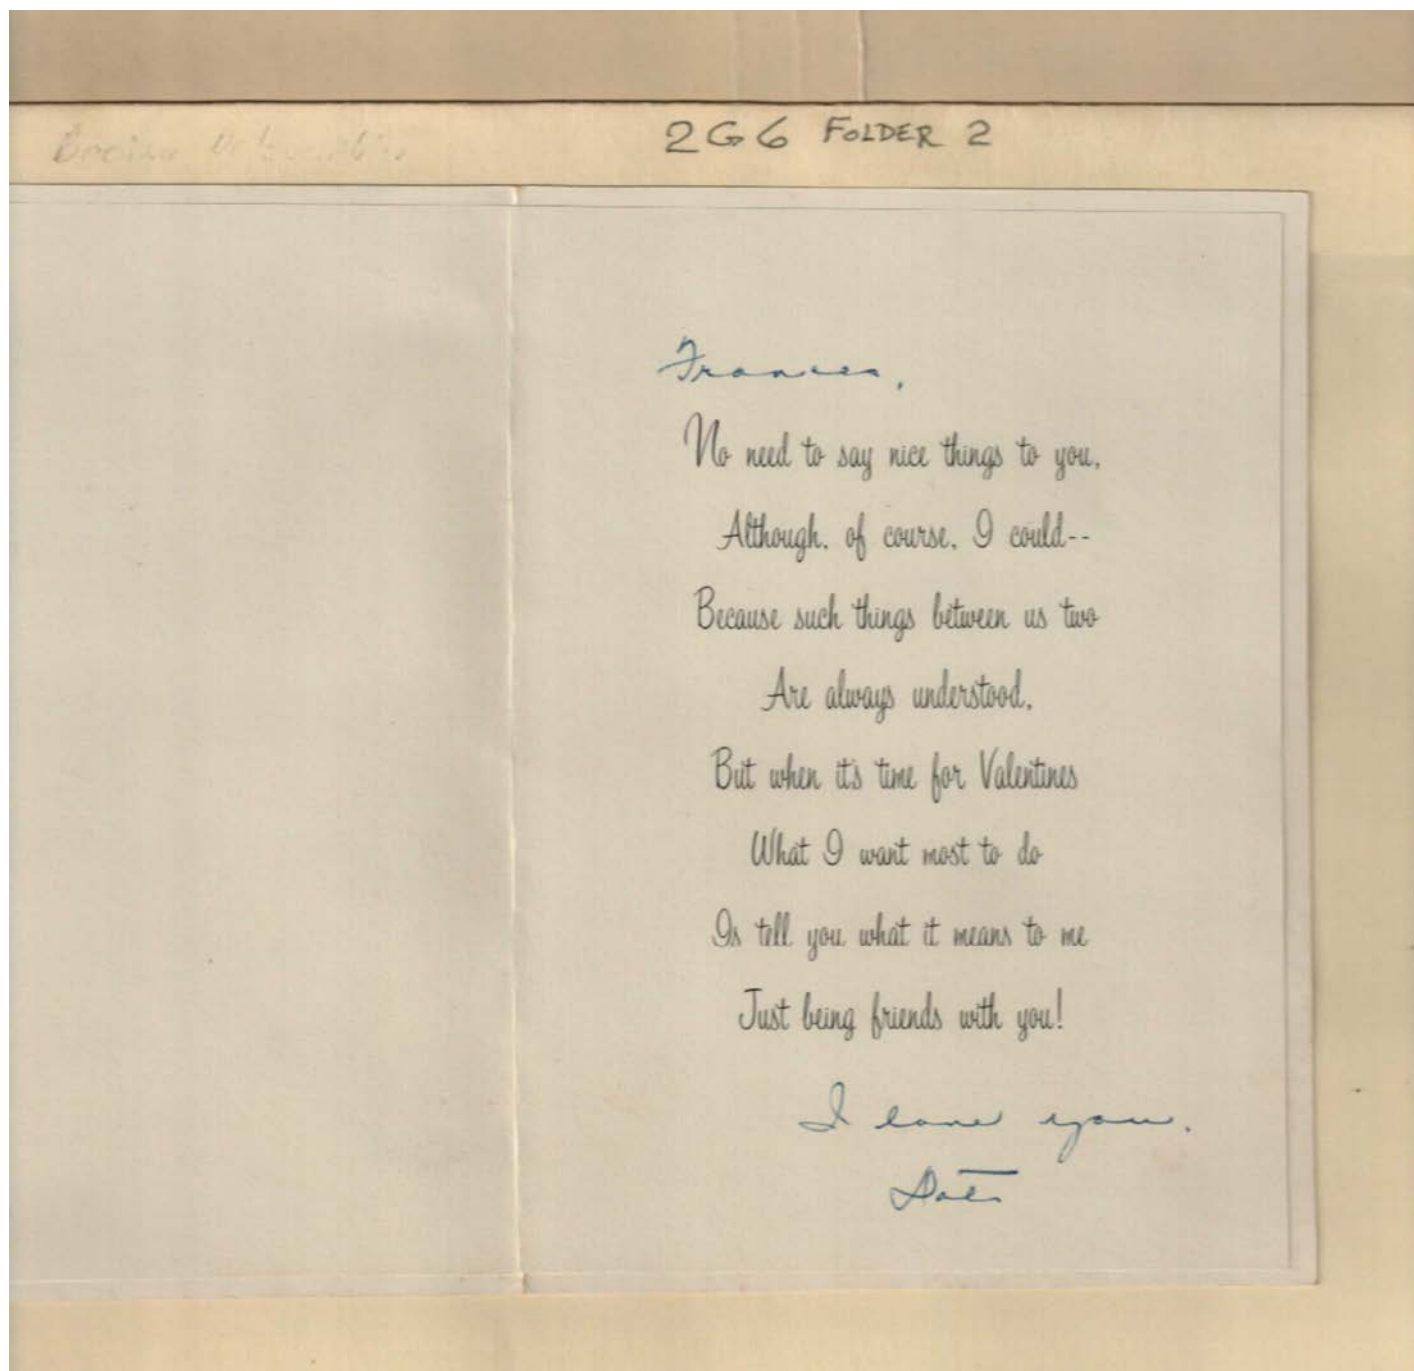 2G6 FOLDER 2
Frances,
No need to say nice things to you,
Although, of course, I could--
Because such things between us two
Are always understood,
But when it's time for Valentines
What I want most to do
Is tell you what it means to me
Just being friends with you!
I love you.